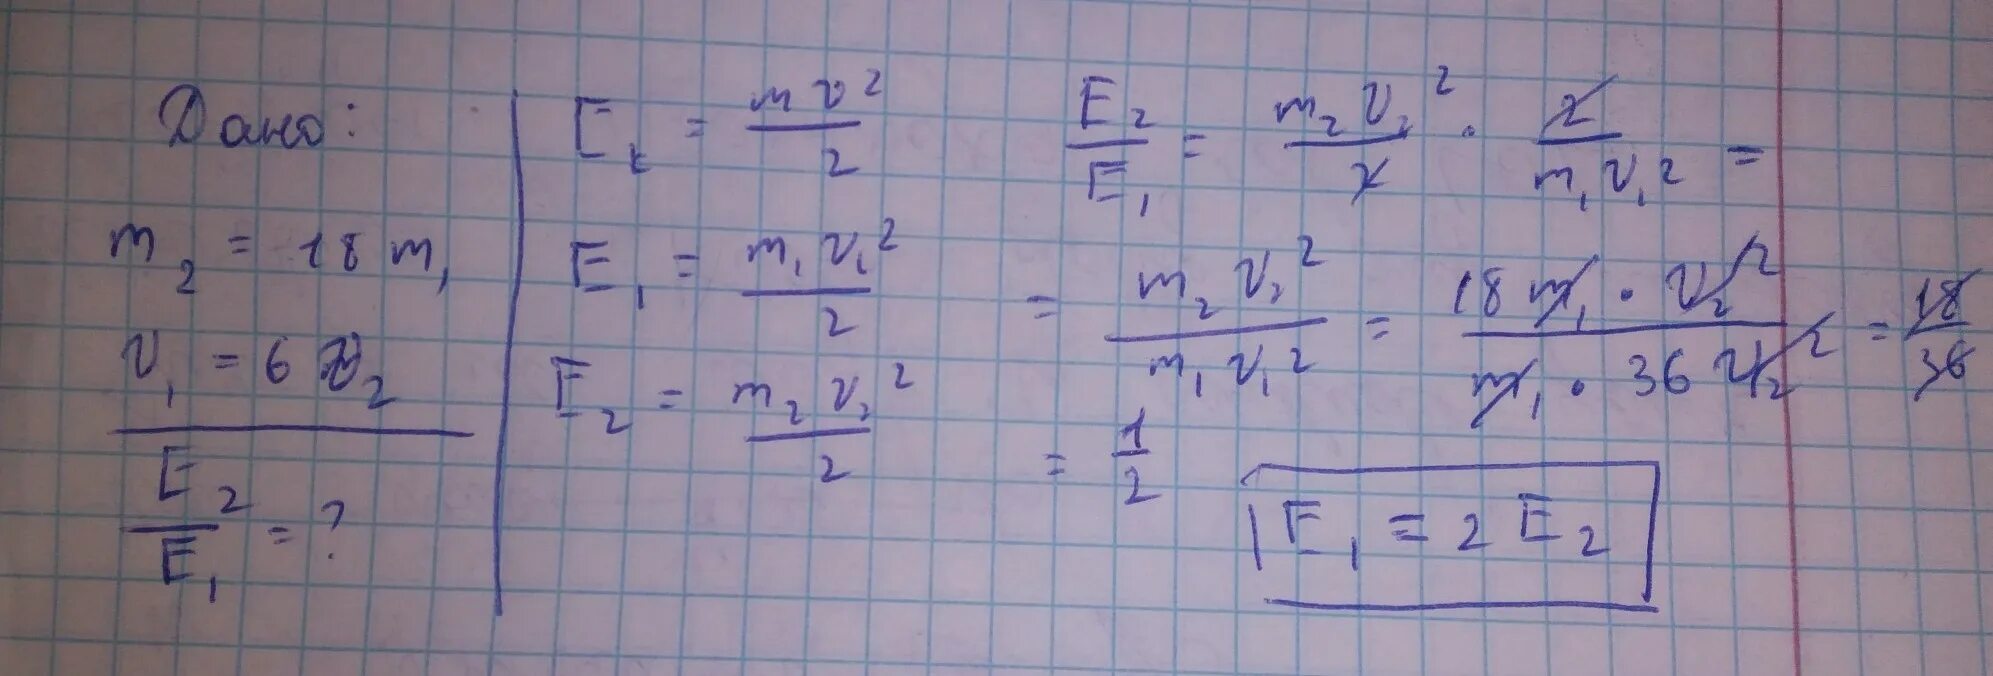 Дано:
m₂ = 18 m₁
v₁ = 6 v₂
E₂/E₁ = ?
Eₖ = mv²/2
E₁ = m₁v₁²/2
E₂ = m₂v₂²/2
E₂/E₁ = m₂v₂²/2 · 2/m₁v₁² =
= m₂v₂²/m₁v₁² = 18m₁ · v₂²/m₁ · 36v₂² = 18/36
= 1/2
E₁ = 2 E₂